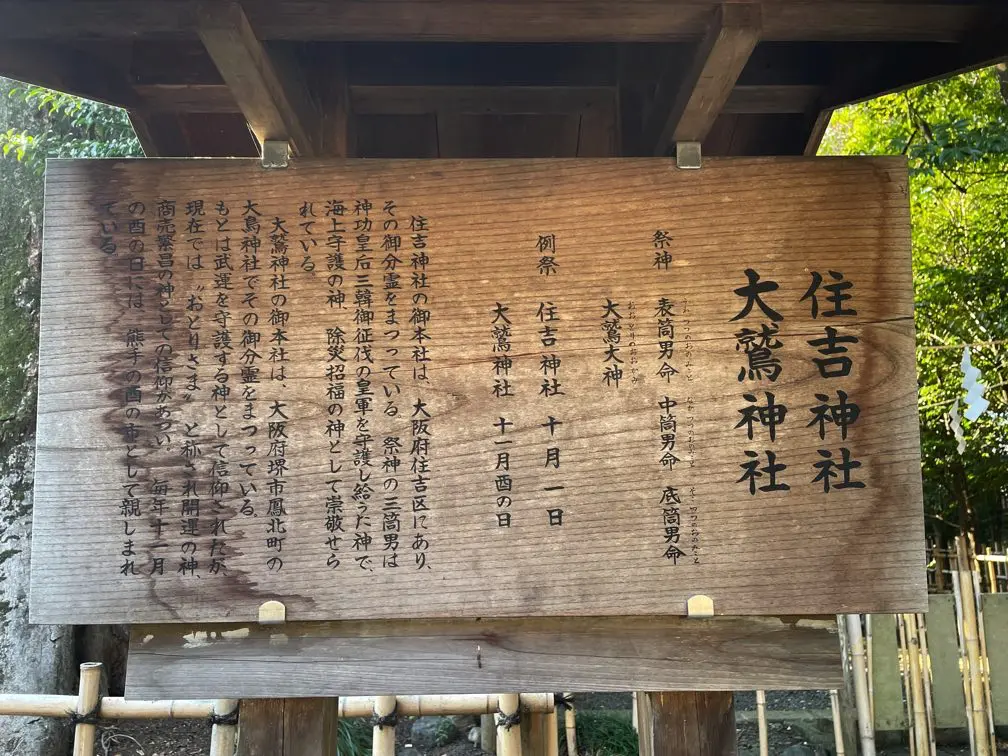 住吉神社
大鷲神社
祭神 表筒男命 中筒男命 底筒男命
大鷲大神
おおとりのおおかみ
例祭 住吉神社 十月一日
大鷲神社 十一月酉の日
住吉神社の御本社は、大阪府住吉区にあり、
その御分霊をまつっている。祭神の三筒男は
神功皇后三韓御征伐の皇軍を守護し給うた神で、
海上守護の神、除災招福の神として崇敬せら
れている。
大鷲神社の御本社は、大阪府堺市鳳北町の
大鳥神社でその御分霊をまつっている。
もとは武運を守護する神として信仰されたが、
現在では〝おとりさま〟と称され開運の神、
商売繁昌の神としての信仰があつい。毎年十一月
の酉の日には、熊手の酉の市として親しまれ
ている。